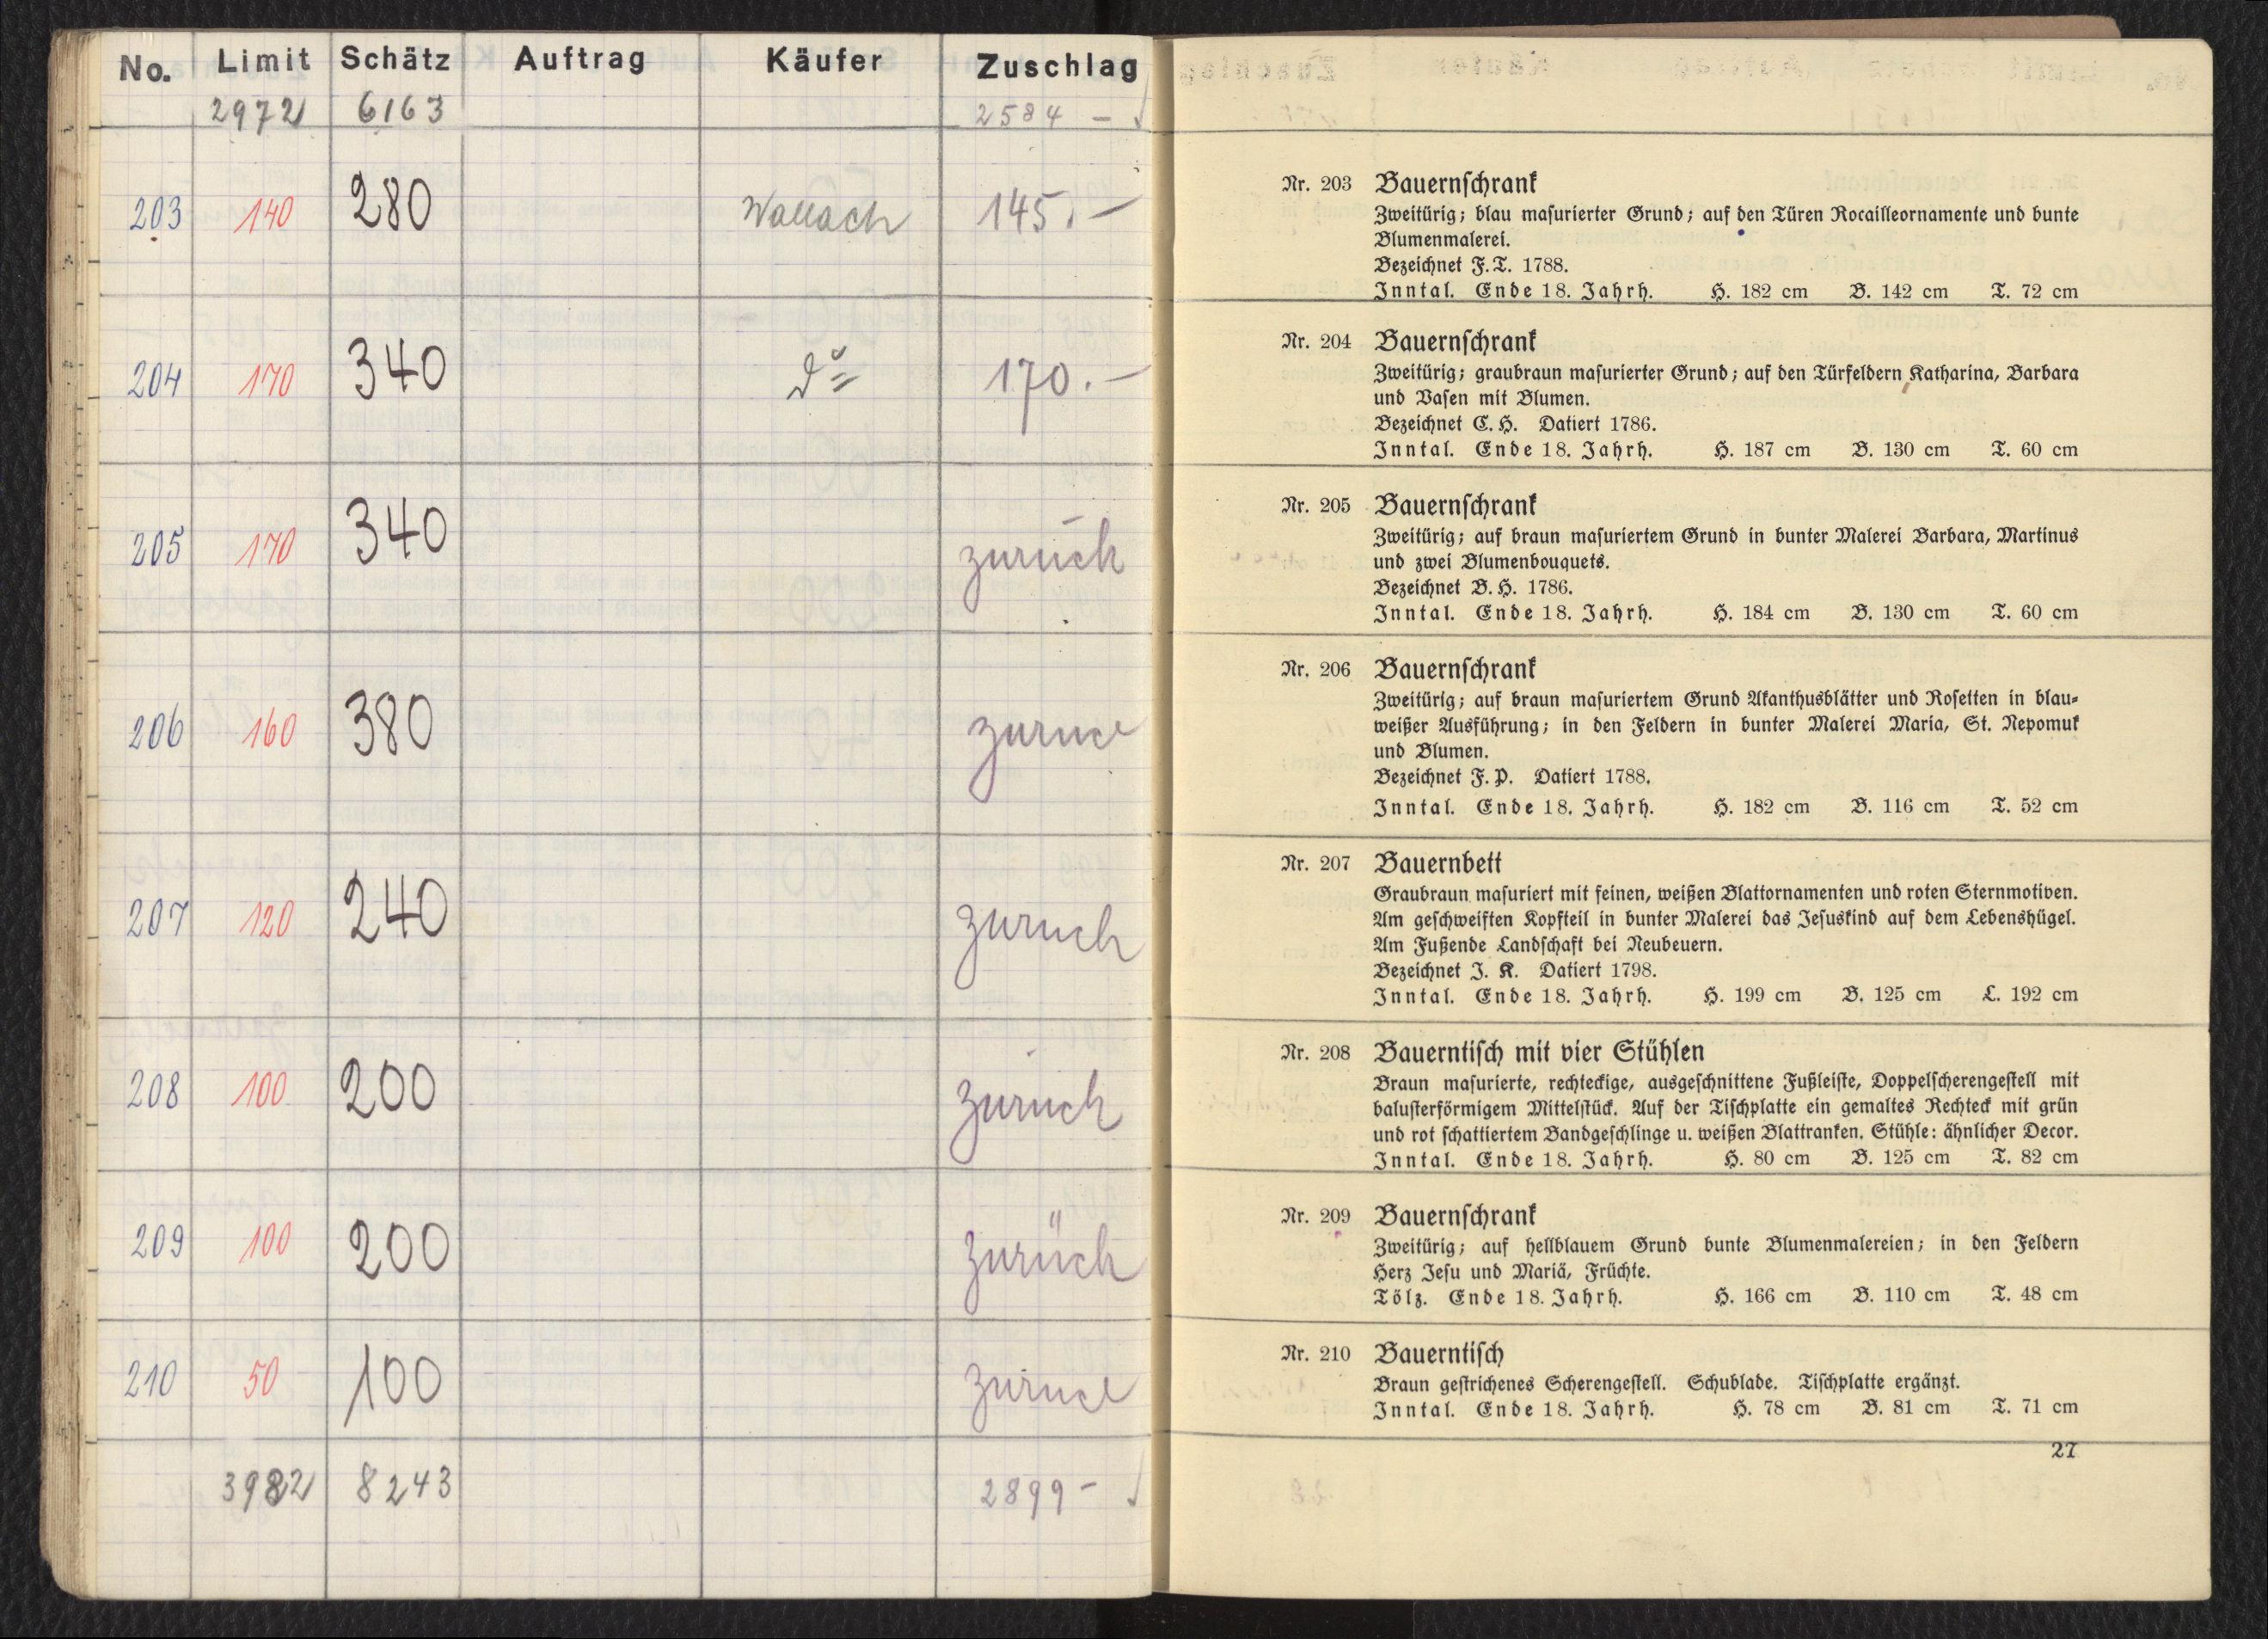 No. Limit Schätz Auftrag Käufer Zuschlag
2972 6163 2584 –
203 140 280 Wallach 145.–
204 170 340 do 170.–
205 170 340 zurück
206 160 380 zurück
207 120 240 zurück
208 100 200 zurück
209 100 200 zurück
210 50 100 zurück
3982 8243 2899 –
Nr. 203 Bauernschrank
Zweitürig; blau masurierter Grund; auf den Türen Rocailleornamente und bunte
Blumenmalerei.
Bezeichnet F. T. 1788.
Inntal. Ende 18. Jahrh. H. 182 cm B. 142 cm T. 72 cm
Nr. 204 Bauernschrank
Zweitürig; graubraun masurierter Grund; auf den Türfeldern Katharina, Barbara
und Vasen mit Blumen.
Bezeichnet C. H. Datiert 1786.
Inntal. Ende 18. Jahrh. H. 187 cm B. 130 cm T. 60 cm
Nr. 205 Bauernschrank
Zweitürig; auf braun masuriertem Grund in bunter Malerei Barbara, Martinus
und zwei Blumenbouquets.
Bezeichnet B. H. 1786.
Inntal. Ende 18. Jahrh. H. 184 cm B. 130 cm T. 60 cm
Nr. 206 Bauernschrank
Zweitürig; auf braun masuriertem Grund Akanthusblätter und Rosetten in blau-
weißer Ausführung; in den Feldern in bunter Malerei Maria, St. Nepomuk
und Blumen.
Bezeichnet F. P. Datiert 1788.
Inntal. Ende 18. Jahrh. H. 182 cm B. 116 cm T. 52 cm
Nr. 207 Bauernbett
Graubraun masuriert mit feinen, weißen Blattornamenten und roten Sternmotiven.
Am geschweiften Kopfteil in bunter Malerei das Jesuskind auf dem Lebenshügel.
Am Fußende Landschaft bei Neubeuern.
Bezeichnet J. K. Datiert 1798.
Inntal. Ende 18. Jahrh. H. 199 cm B. 125 cm L. 192 cm
Nr. 208 Bauerntisch mit vier Stühlen
Braun masurierte, rechteckige, ausgeschnittene Fußleiste, Doppelscherengestell mit
balusterförmigem Mittelstück. Auf der Tischplatte ein gemaltes Rechteck mit grün
und rot schattiertem Bandgeschlinge u. weißen Blattranken. Stühle: ähnlicher Decor.
Inntal. Ende 18. Jahrh. H. 80 cm B. 125 cm T. 82 cm
Nr. 209 Bauernschrank
Zweitürig; auf hellblauem Grund bunte Blumenmalereien; in den Feldern
Herz Jesu und Mariä, Früchte.
Tölz. Ende 18. Jahrh. H. 166 cm B. 110 cm T. 48 cm
Nr. 210 Bauerntisch
Braun gestrichenes Scherengestell. Schublade. Tischplatte ergänzt.
Inntal. Ende 18. Jahrh. H. 78 cm B. 81 cm T. 71 cm
27